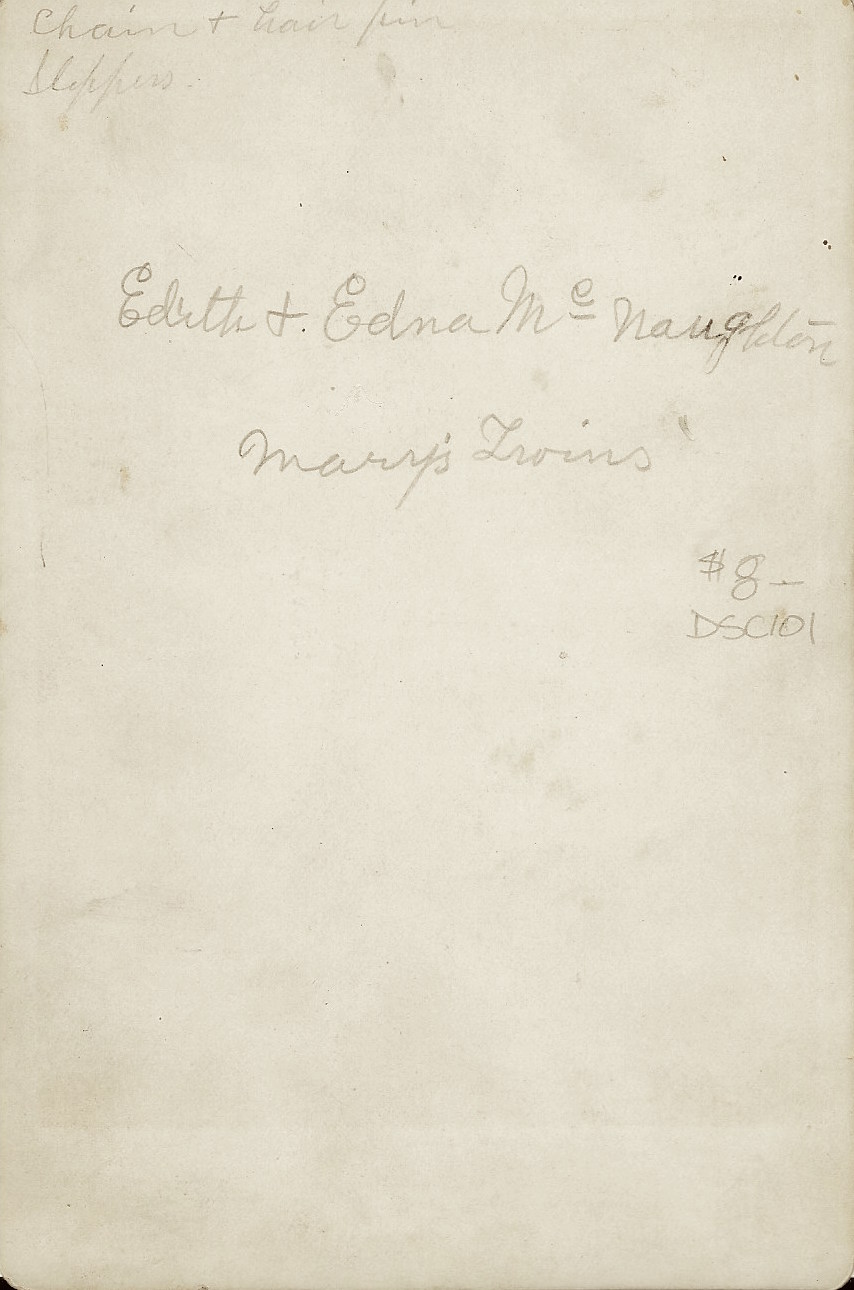 Chain + hair pin
Slippers.
Edith + Edna Mc Naughton
Mary's Twins
$8-
DSC101